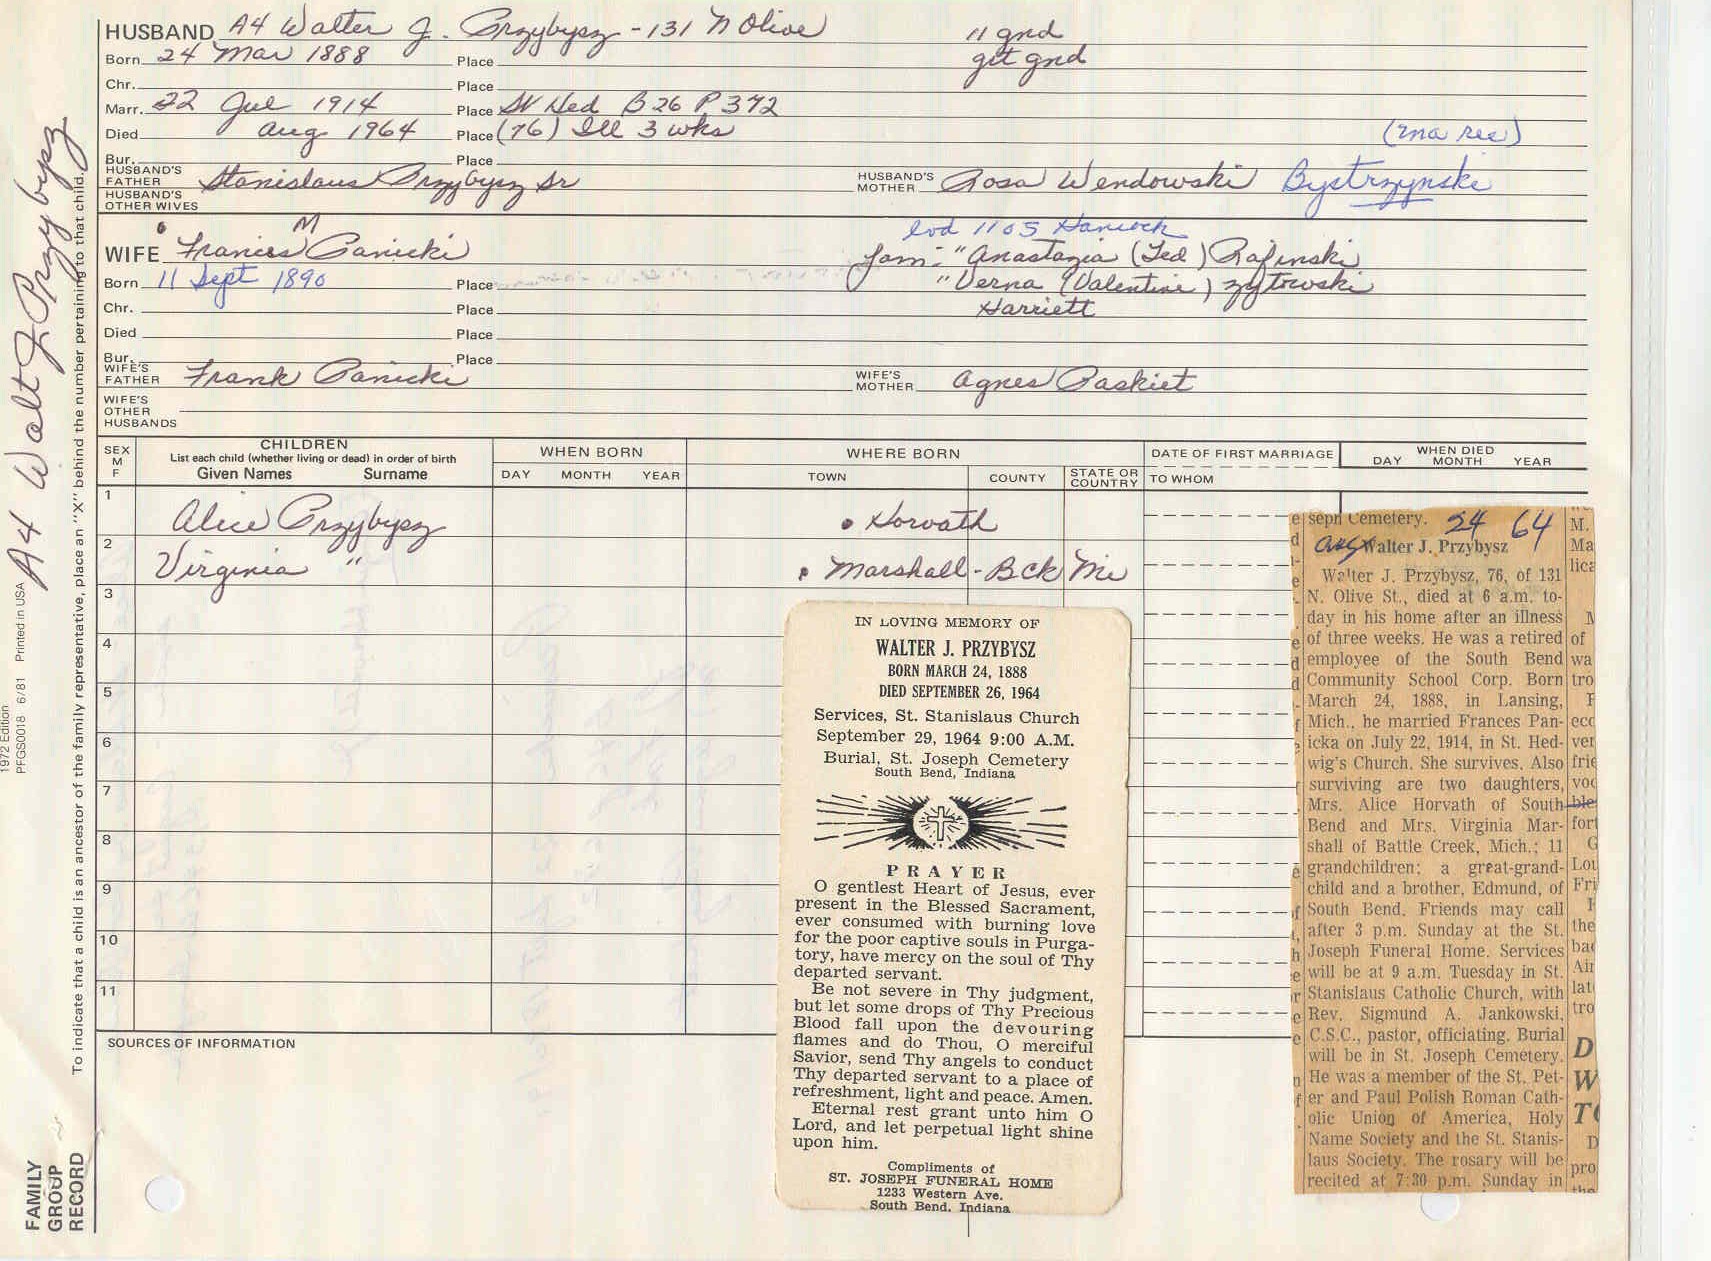 HUSBAND A4 Walter J. Przybysz - 131 N Olive 11 gnd
Born 24 Mar 1888 Place gtt gnd
Chr. Place
Marr. 22 Jul 1914 Place St Hed B 26 P 372
Died Aug 1964 Place (76) Ill 3 wks (ma rec)
Bur. Place
HUSBAND'S FATHER Stanislaus Przybysz Sr HUSBAND'S MOTHER Rosa Wendowski Bystrzynski
HUSBAND'S OTHER WIVES
lvd 1105 Hancock
WIFE Frances M Panicki fam: "Anastazia (Ted) Rafinski
Born 11 Sept 1890 Place "Verna (Valentine) Zytowski
Chr. Place Harriett
Died Place
Bur. Place
WIFE'S FATHER Frank Panicki WIFE'S MOTHER Agnes Paskiet
WIFE'S OTHER HUSBANDS
SEX M F
CHILDREN
List each child (whether living or dead) in order of birth
Given Names Surname
WHEN BORN
DAY MONTH YEAR
WHERE BORN
TOWN COUNTY STATE OR COUNTRY
DATE OF FIRST MARRIAGE
TO WHOM
WHEN DIED
DAY MONTH YEAR
1 Alice Przybysz • Horvath
2 Virginia " • Marshall - B Ck Mi
3
4
5
6
7
8
9
10
11
SOURCES OF INFORMATION
IN LOVING MEMORY OF
WALTER J. PRZYBYSZ
BORN MARCH 24, 1888
DIED SEPTEMBER 26, 1964
Services, St. Stanislaus Church
September 29, 1964 9:00 A.M.
Burial, St. Joseph Cemetery
South Bend, Indiana
PRAYER
O gentlest Heart of Jesus, ever
present in the Blessed Sacrament,
ever consumed with burning love
for the poor captive souls in Purga-
tory, have mercy on the soul of Thy
departed servant.
Be not severe in Thy judgment,
but let some drops of Thy Precious
Blood fall upon the devouring
flames and do Thou, O merciful
Savior, send Thy angels to conduct
Thy departed servant to a place of
refreshment, light and peace. Amen.
Eternal rest grant unto him O
Lord, and let perpetual light shine
upon him.
Compliments of
ST. JOSEPH FUNERAL HOME
1233 Western Ave.
South Bend, Indiana
seph Cemetery. 24 64
Aug Walter J. Przybysz
Walter J. Przybysz, 76, of 131
N. Olive St., died at 6 a.m. to-
day in his home after an illness
of three weeks. He was a retired
employee of the South Bend
Community School Corp. Born
March 24, 1888, in Lansing,
Mich., he married Frances Pan-
icka on July 22, 1914, in St. Hed-
wig's Church. She survives. Also
surviving are two daughters,
Mrs. Alice Horvath of South
Bend and Mrs. Virginia Mar-
shall of Battle Creek, Mich.; 11
grandchildren; a great-grand-
child and a brother, Edmund, of
South Bend. Friends may call
after 3 p.m. Sunday at the St.
Joseph Funeral Home. Services
will be at 9 a.m. Tuesday in St.
Stanislaus Catholic Church, with
Rev. Sigmund A. Jankowski,
C.S.C., pastor, officiating. Burial
will be in St. Joseph Cemetery.
He was a member of the St. Pet-
er and Paul Polish Roman Cath-
olic Union of America, Holy
Name Society and the St. Stanis-
laus Society. The rosary will be
recited at 7:30 p.m. Sunday in
A4 Walt J Przybysz
To indicate that a child is an ancestor of the family representative, place an "X" behind the number pertaining to that child.
1972 Edition
PFGS0018 6/81 Printed in USA
FAMILY
GROUP
RECORD